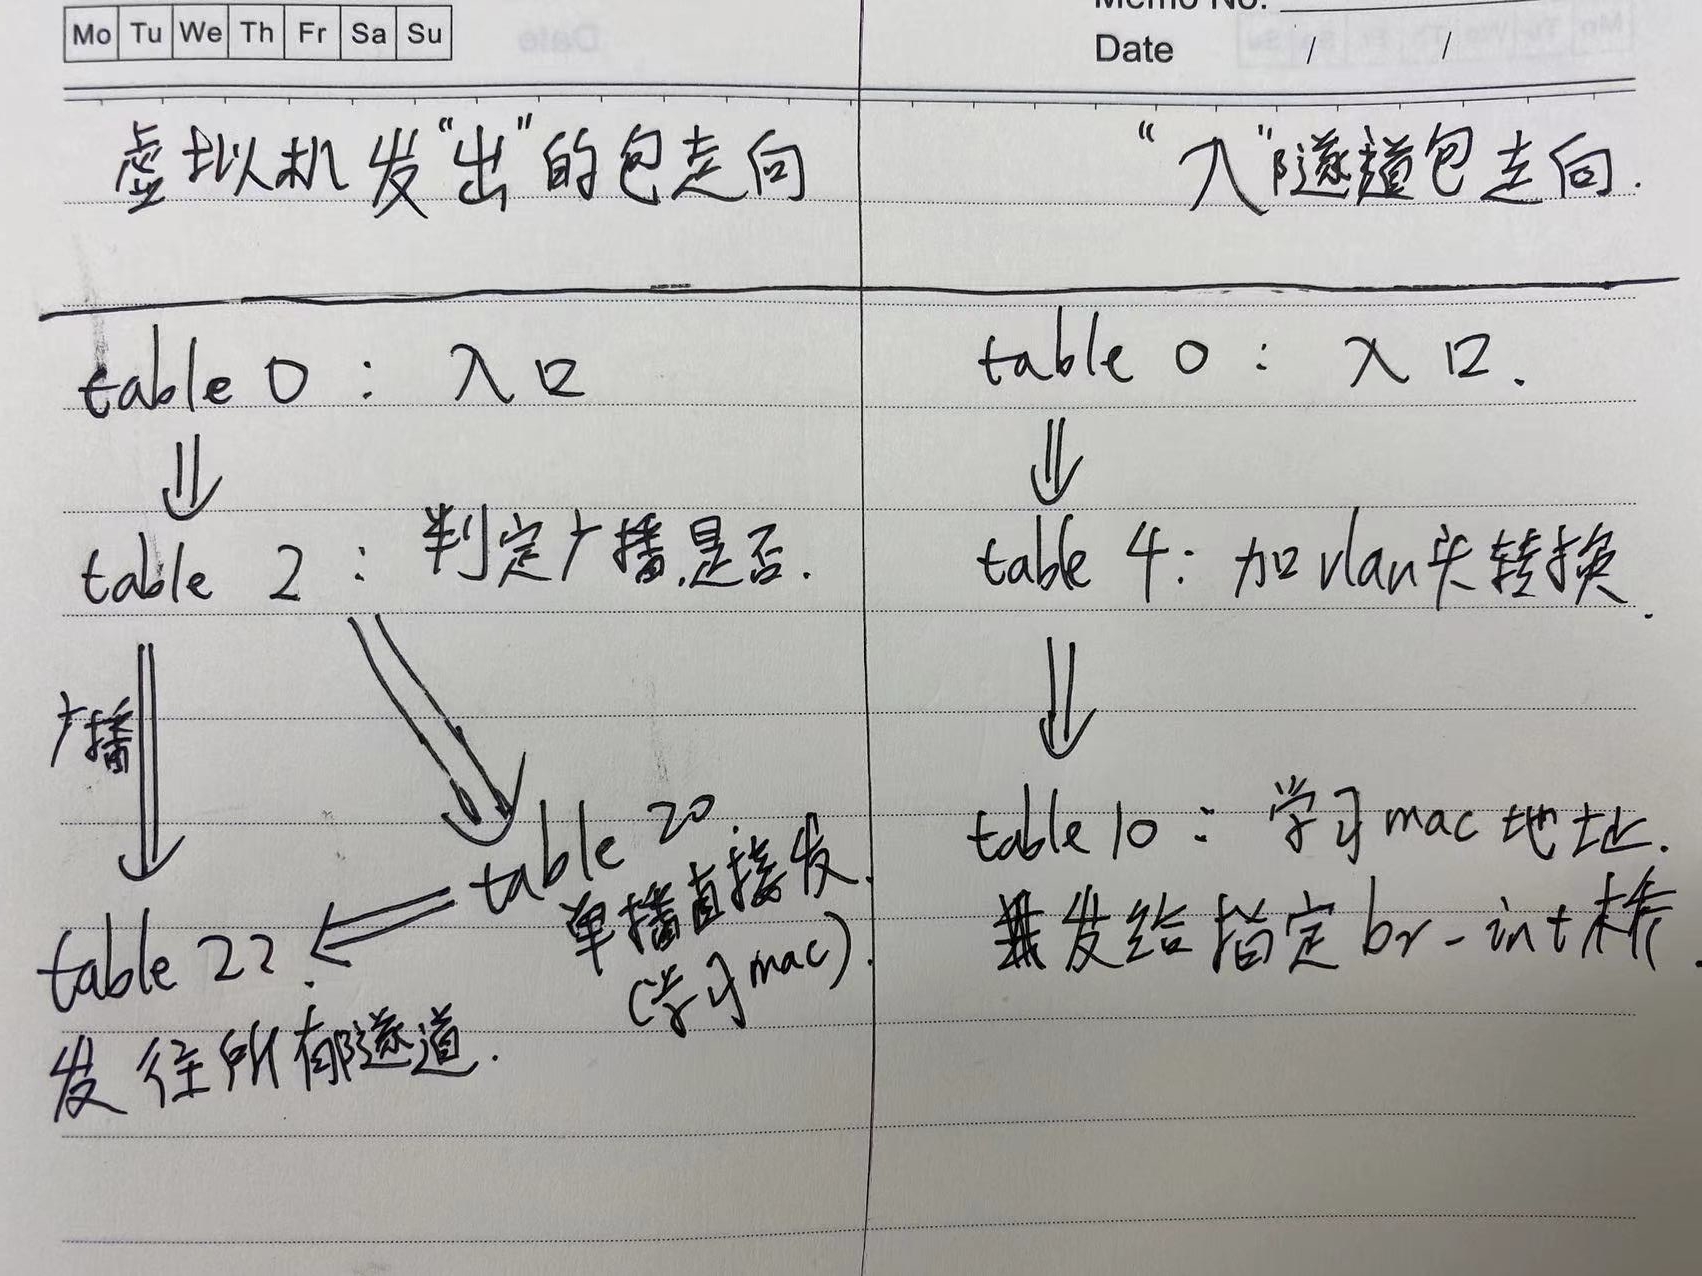 Mo Tu We Th Fr Sa Su
Memo No.
Date / /
虚拟机发“出”的包走向
table 0 : 入口
table 2 : 判定广播是否.
广播
table 20.
单播直接发.
(学习mac).
table 22.
发往所有隧道.
“入”隧道包走向.
table 0 : 入口.
table 4: 加vlan头转换.
table 10 : 学习mac地址.
并发给指定br-int桥.